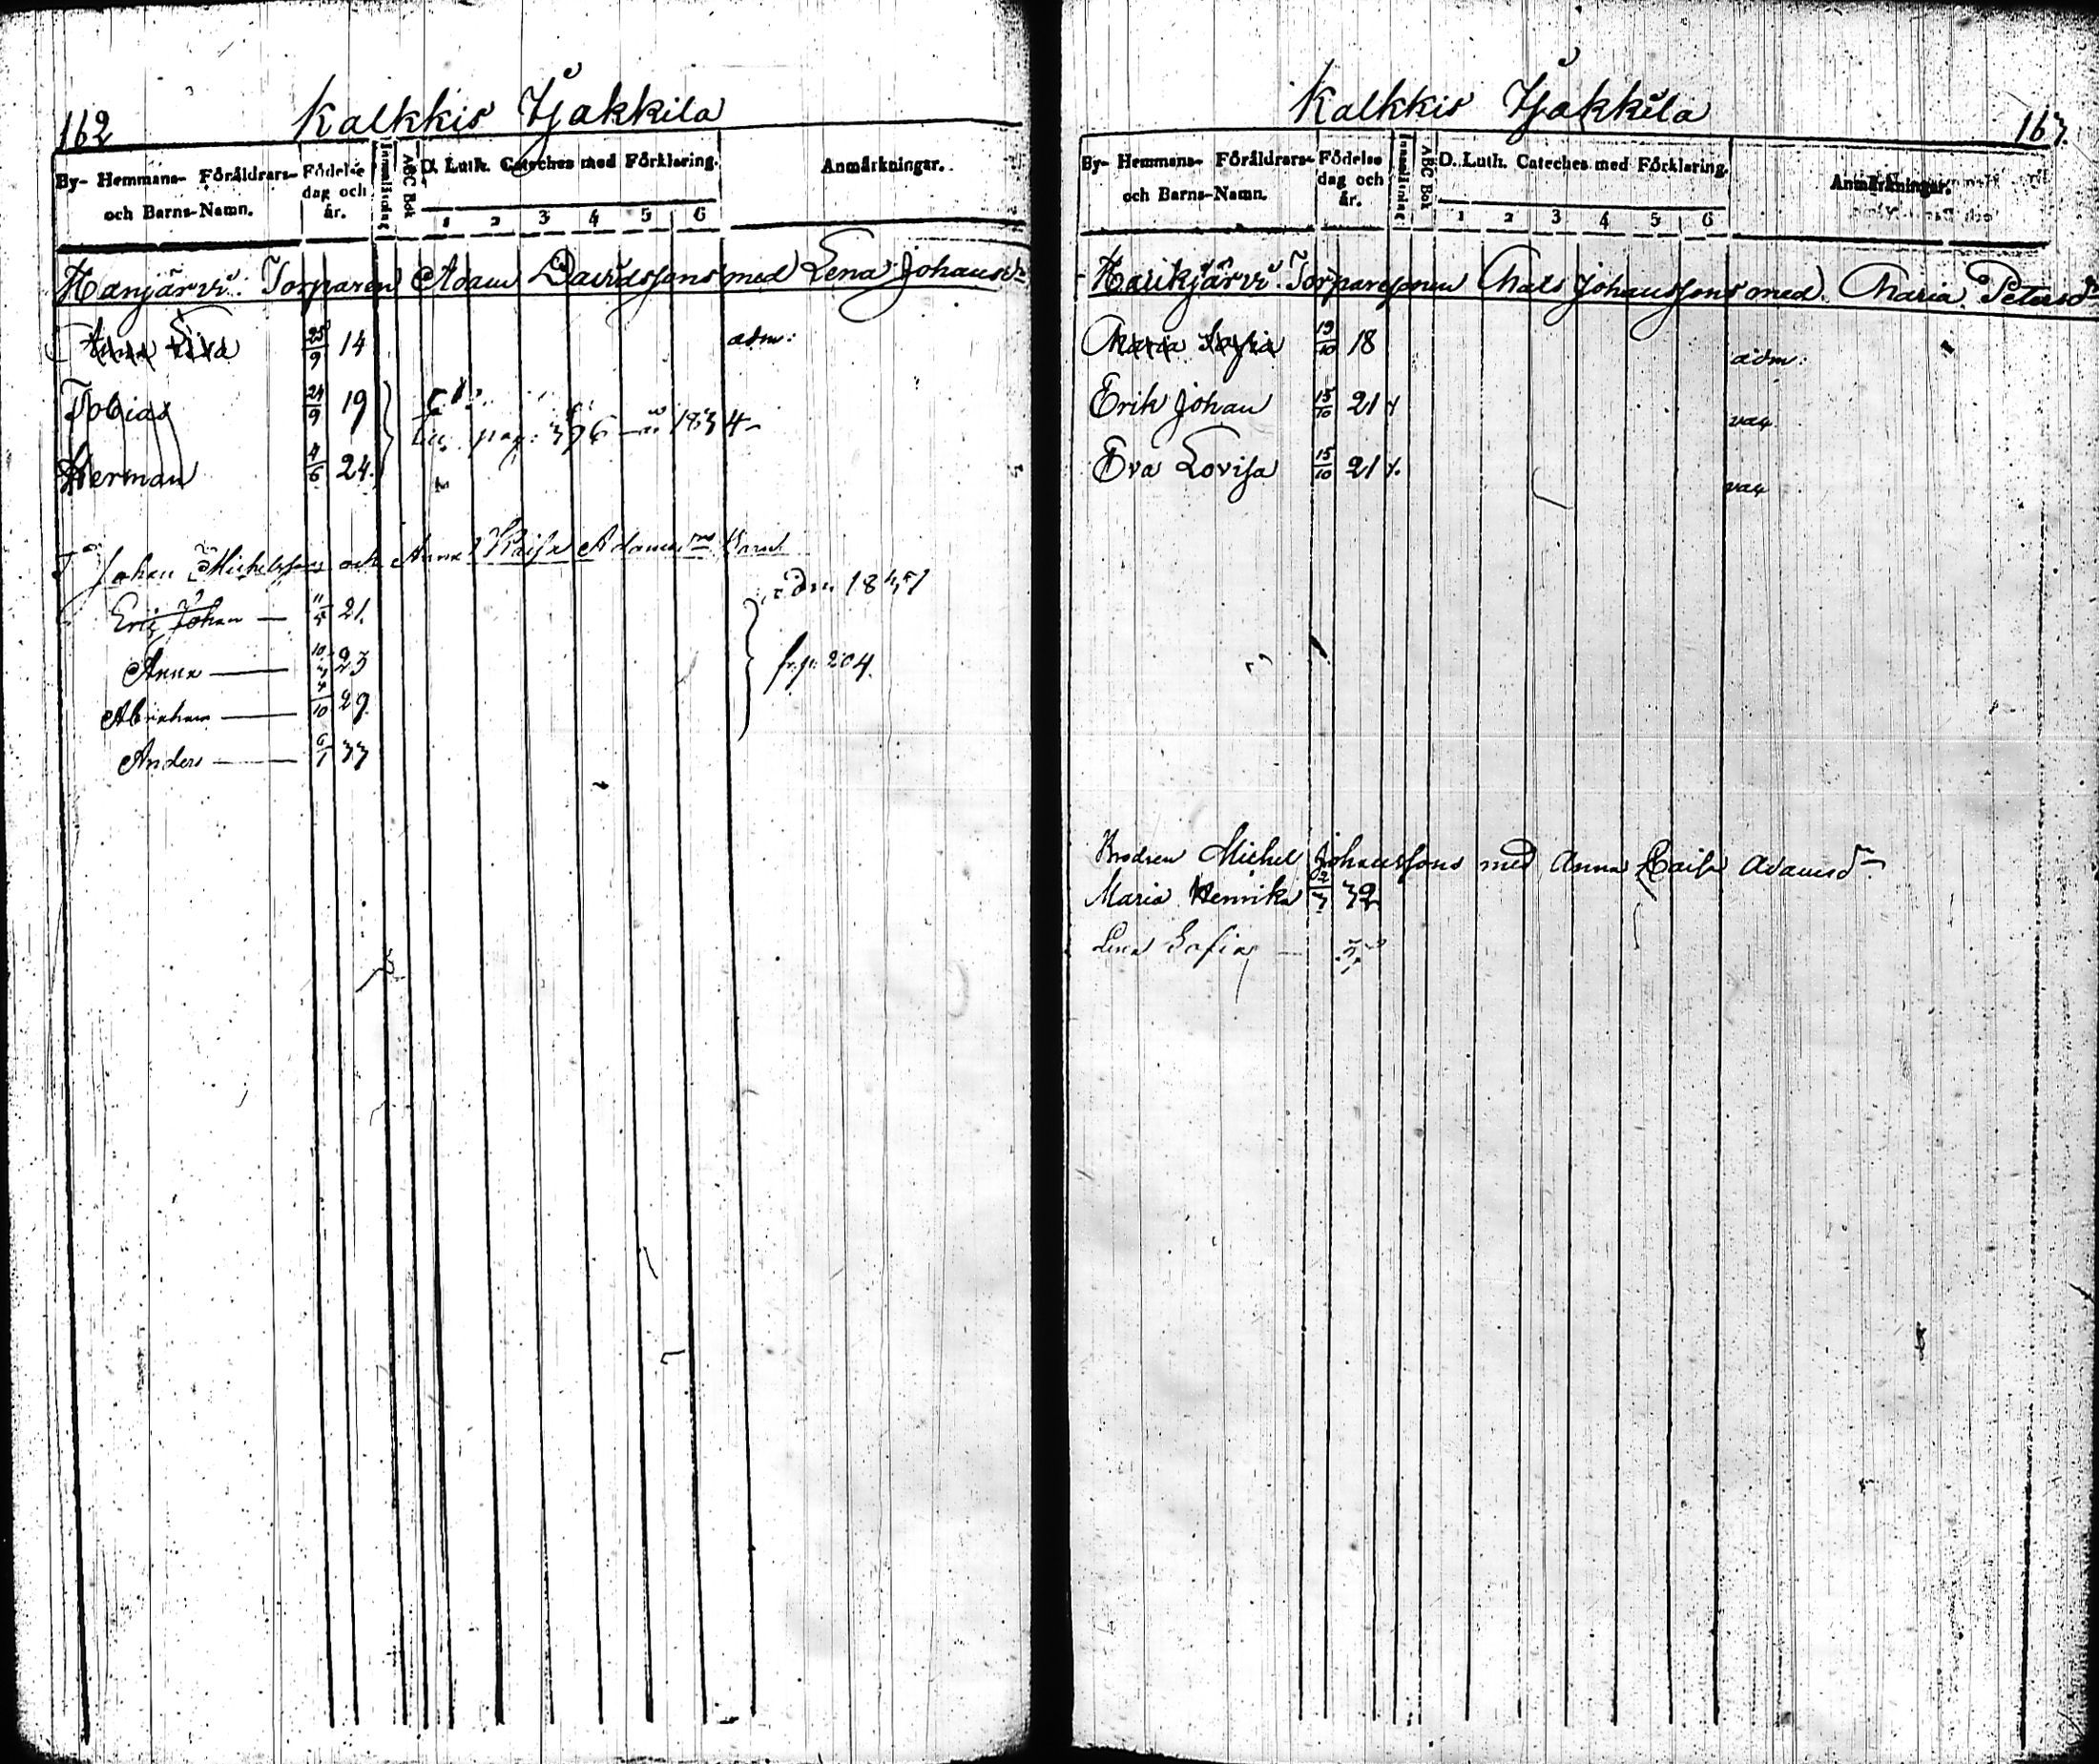 162 Kalkkis Tjakkila
By- Hemmans- Föräldrars- och Barns-Namn. Födelse dag och år. Innanläsning ABC Bok D. Luth. Cateches med Förklaring. Anmärkningar.
1 2 3 4 5 6
Torparen Adam Davidssons med Lena Johansdr
25/9 14 adm:
Tobias 24/9 19
pag: 396 1834
Herman 4/6 24.
Johan Michelssons och Anna Kaisa Adamsdrs Barn
Eric Johan — 11/5 21. adm 18
Anna — 10/3 23 fr. p. 204.
Abraham — 4/10 29
Anders — 6/1 33
Kalkkis Tjakkila 163.
By- Hemmans- Föräldrars- och Barns-Namn. Födelse dag och år. Innanläsning ABC Bok D. Luth. Cateches med Förklaring. Anmärkningar.
1 2 3 4 5 6
Haukjärvi. Torparesonen Mats Johanssons med Maria Petersdr
Maria Sofia 19/10 18 adm:
Erik Johan 15/10 21 x vac.
Eva Lovisa 15/10 21 x. vac
Brodren Michel Johanssons med Anna Caisa Adamsdr
Maria Henrika 2/3 32
Lena Sofia —